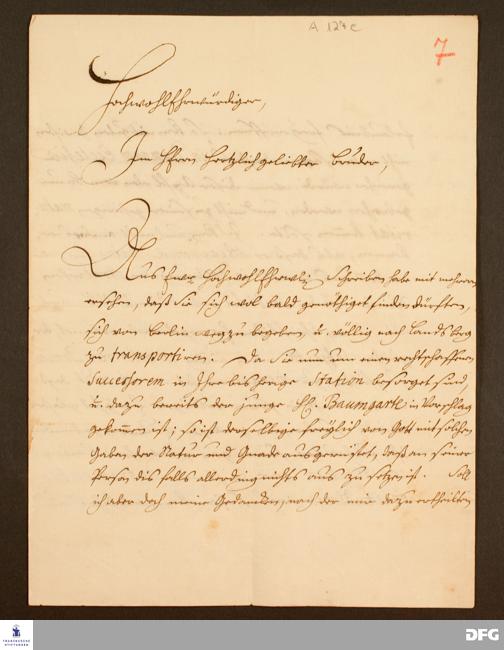 A 127c
7
Hochwohlehrwürdiger,
Im Herrn hertzlich geliebter Bruder,
Aus Ewr. Hochwohlehrwl. Schreiben habe mit mehrern
ersehen, daß Sie sich wol bald genöthiget finden dürfften,
sich von Berlin wegzu begeben, u. völlig nach Landsberg
zu transportiren. Da Sie nun um einen rechtschaffenen
Successorem in Ihre bisherige Station besorget sind,
u. dazu bereits der junge H. Baumgarte in Vorschlag
gekommen ist; so ist derselbige freylich von Gott mit solchen
Gaben der Natur und Gnade ausgerüstet, daß an seiner
Person dis falls allerding nichts aus zu setzen ist. Soll
ich aber doch meine Gedancken, nach der mir dazu ertheilten
FRANCKESCHE STIFTUNGEN
DFG